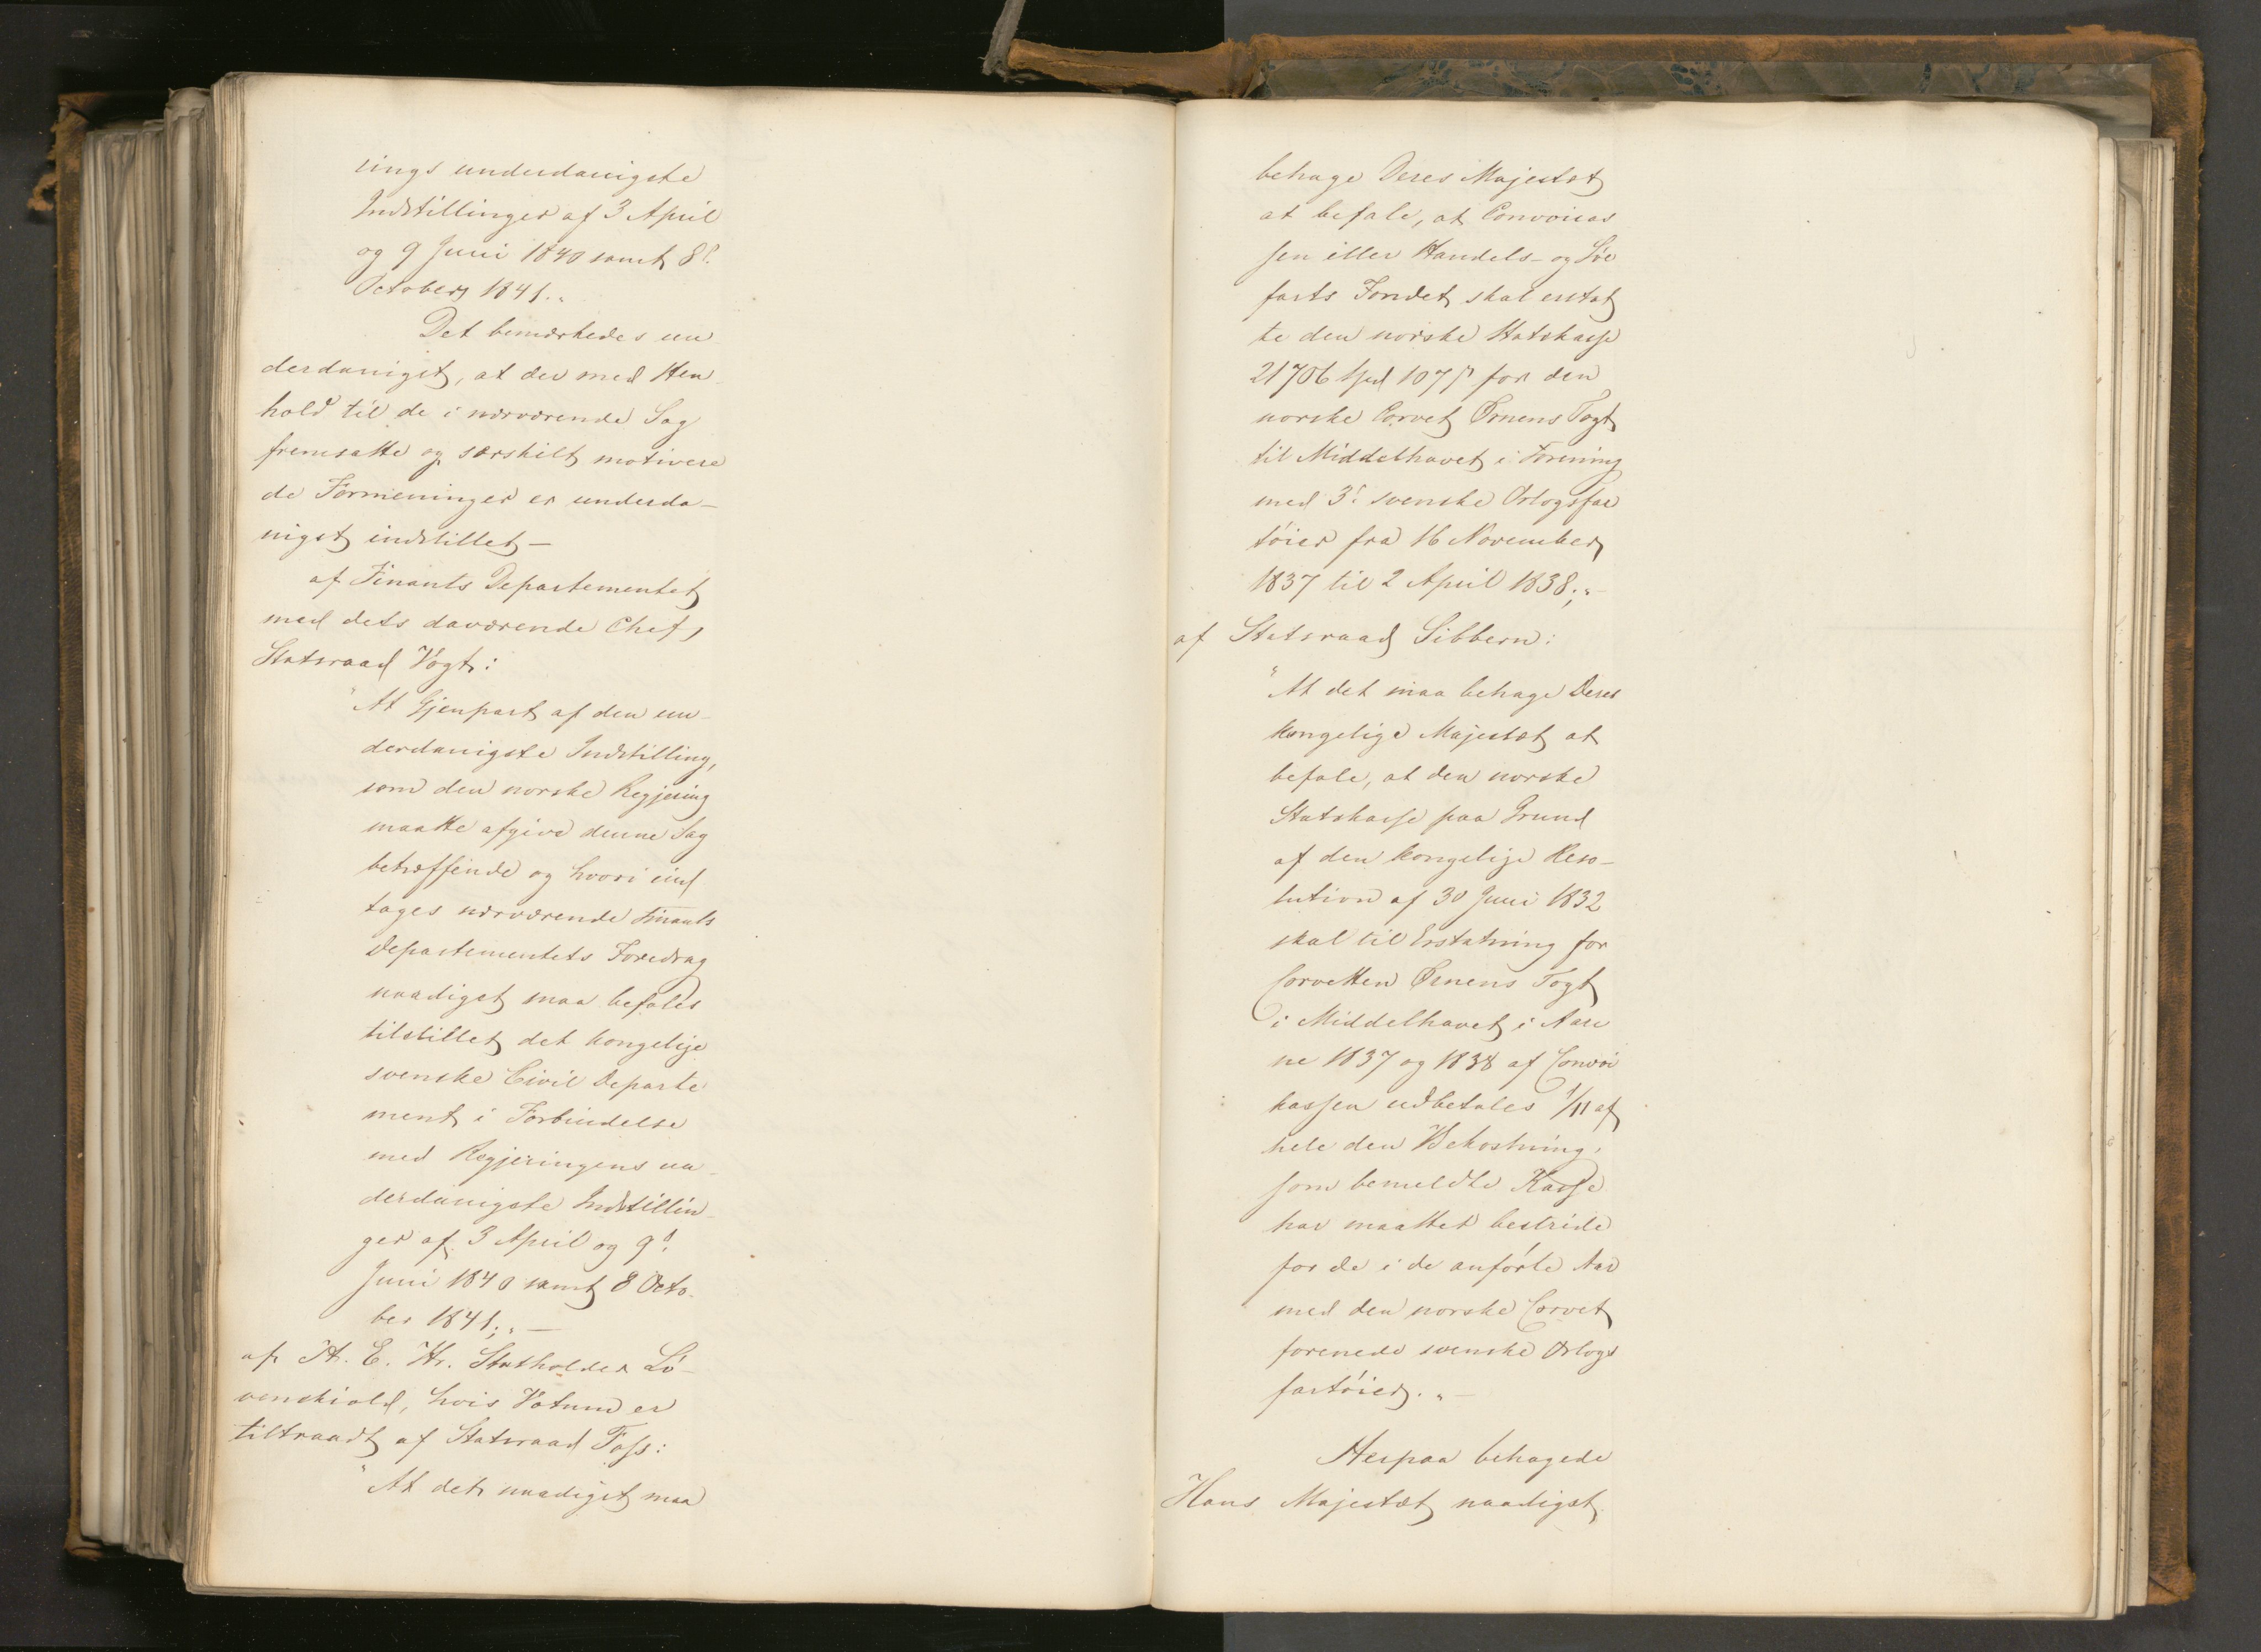 rings underdanigste
Indstillinger af 3 April
og 9 Juni 1840 samt 8.
October 1841.„
Det bemærkedes un
derdanigst, at der med Hen
hold til de i nærværende Sag
fremsatte og særskilt motivere
de Formeninger er underda-
nigst indstillet —
af Finants Departementet
med dets daværende Chef,
Statsraad Vogt:
"At Gjenpart af den un-
derdanigste Indstilling,
som den norske Regjering
maatte afgive denne Sag
betræffende og hvori ind
tages nærværende Finants
Departementets Foredrag
naadigst maa befales
tilstillet det kongelige
svenske Civil Departe
ment i Forbindelse
med Regjeringens un-
derdanigste Indstillin-
ger af 3 April og 9.
Juni 1840 samt 8 Octo-
ber 1841;„ —
af H. E. Hr. Statholder Lö-
venskiold, hvis Votum er
tiltraadt af Statsraad Fasting:
"At det naadigst maa
behage Deres Majestæt
at befale, at Convoicas
sen eller Handels- og Söe
farts Fondet skal erstat
te den norske Statskasse
21706 Spd 107 ß for den
norske Corvet Ørnens Togt
til Middelhavet i Forening
med 3. svenske Orlogsfar
töier fra 16 November
1837 til 2 April 1838;„—
af Statsraad Sibbern:
"At det maa behage Deres
kongelige Majestæt at
befale, at den norske
Statskasse paa Grund
af den kongelige Reso-
lution af 30 Juni 1832
skal til Erstatning for
Corvetten Ørnens Togt
i Middelhavet i Aare
ne 1837 og 1838 af Convoi
kassen udbetales 1/11 af
hele den Bekostning,
som bemeldte Kasse
har maattet bestride
for de i de anförte Aar
med den norske Corvet
forenede svenske Orlogs
fartöier.„—
Herpaa behagede
Hans Majestæt naadigst